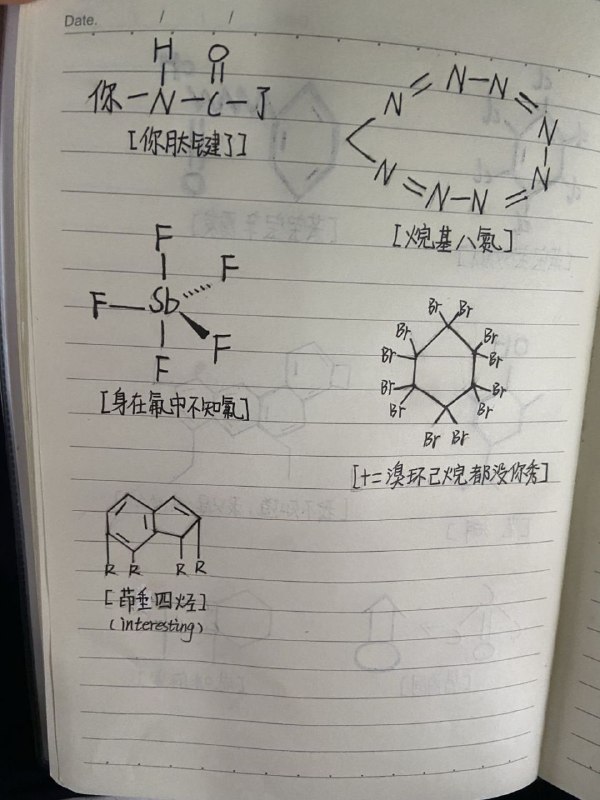 Date. / /
H O
你-N-C-了
[你肽键了]
N N-N
N
N
N N-N
[烷基八氮]
F
F
F Sb
F
F
[身在氟中不知氟]
Br Br
Br Br
Br Br
Br Br
Br Br
Br Br
[十二溴环己烷都没你秀]
R R R R
[茚垂四烃]
(interesting)